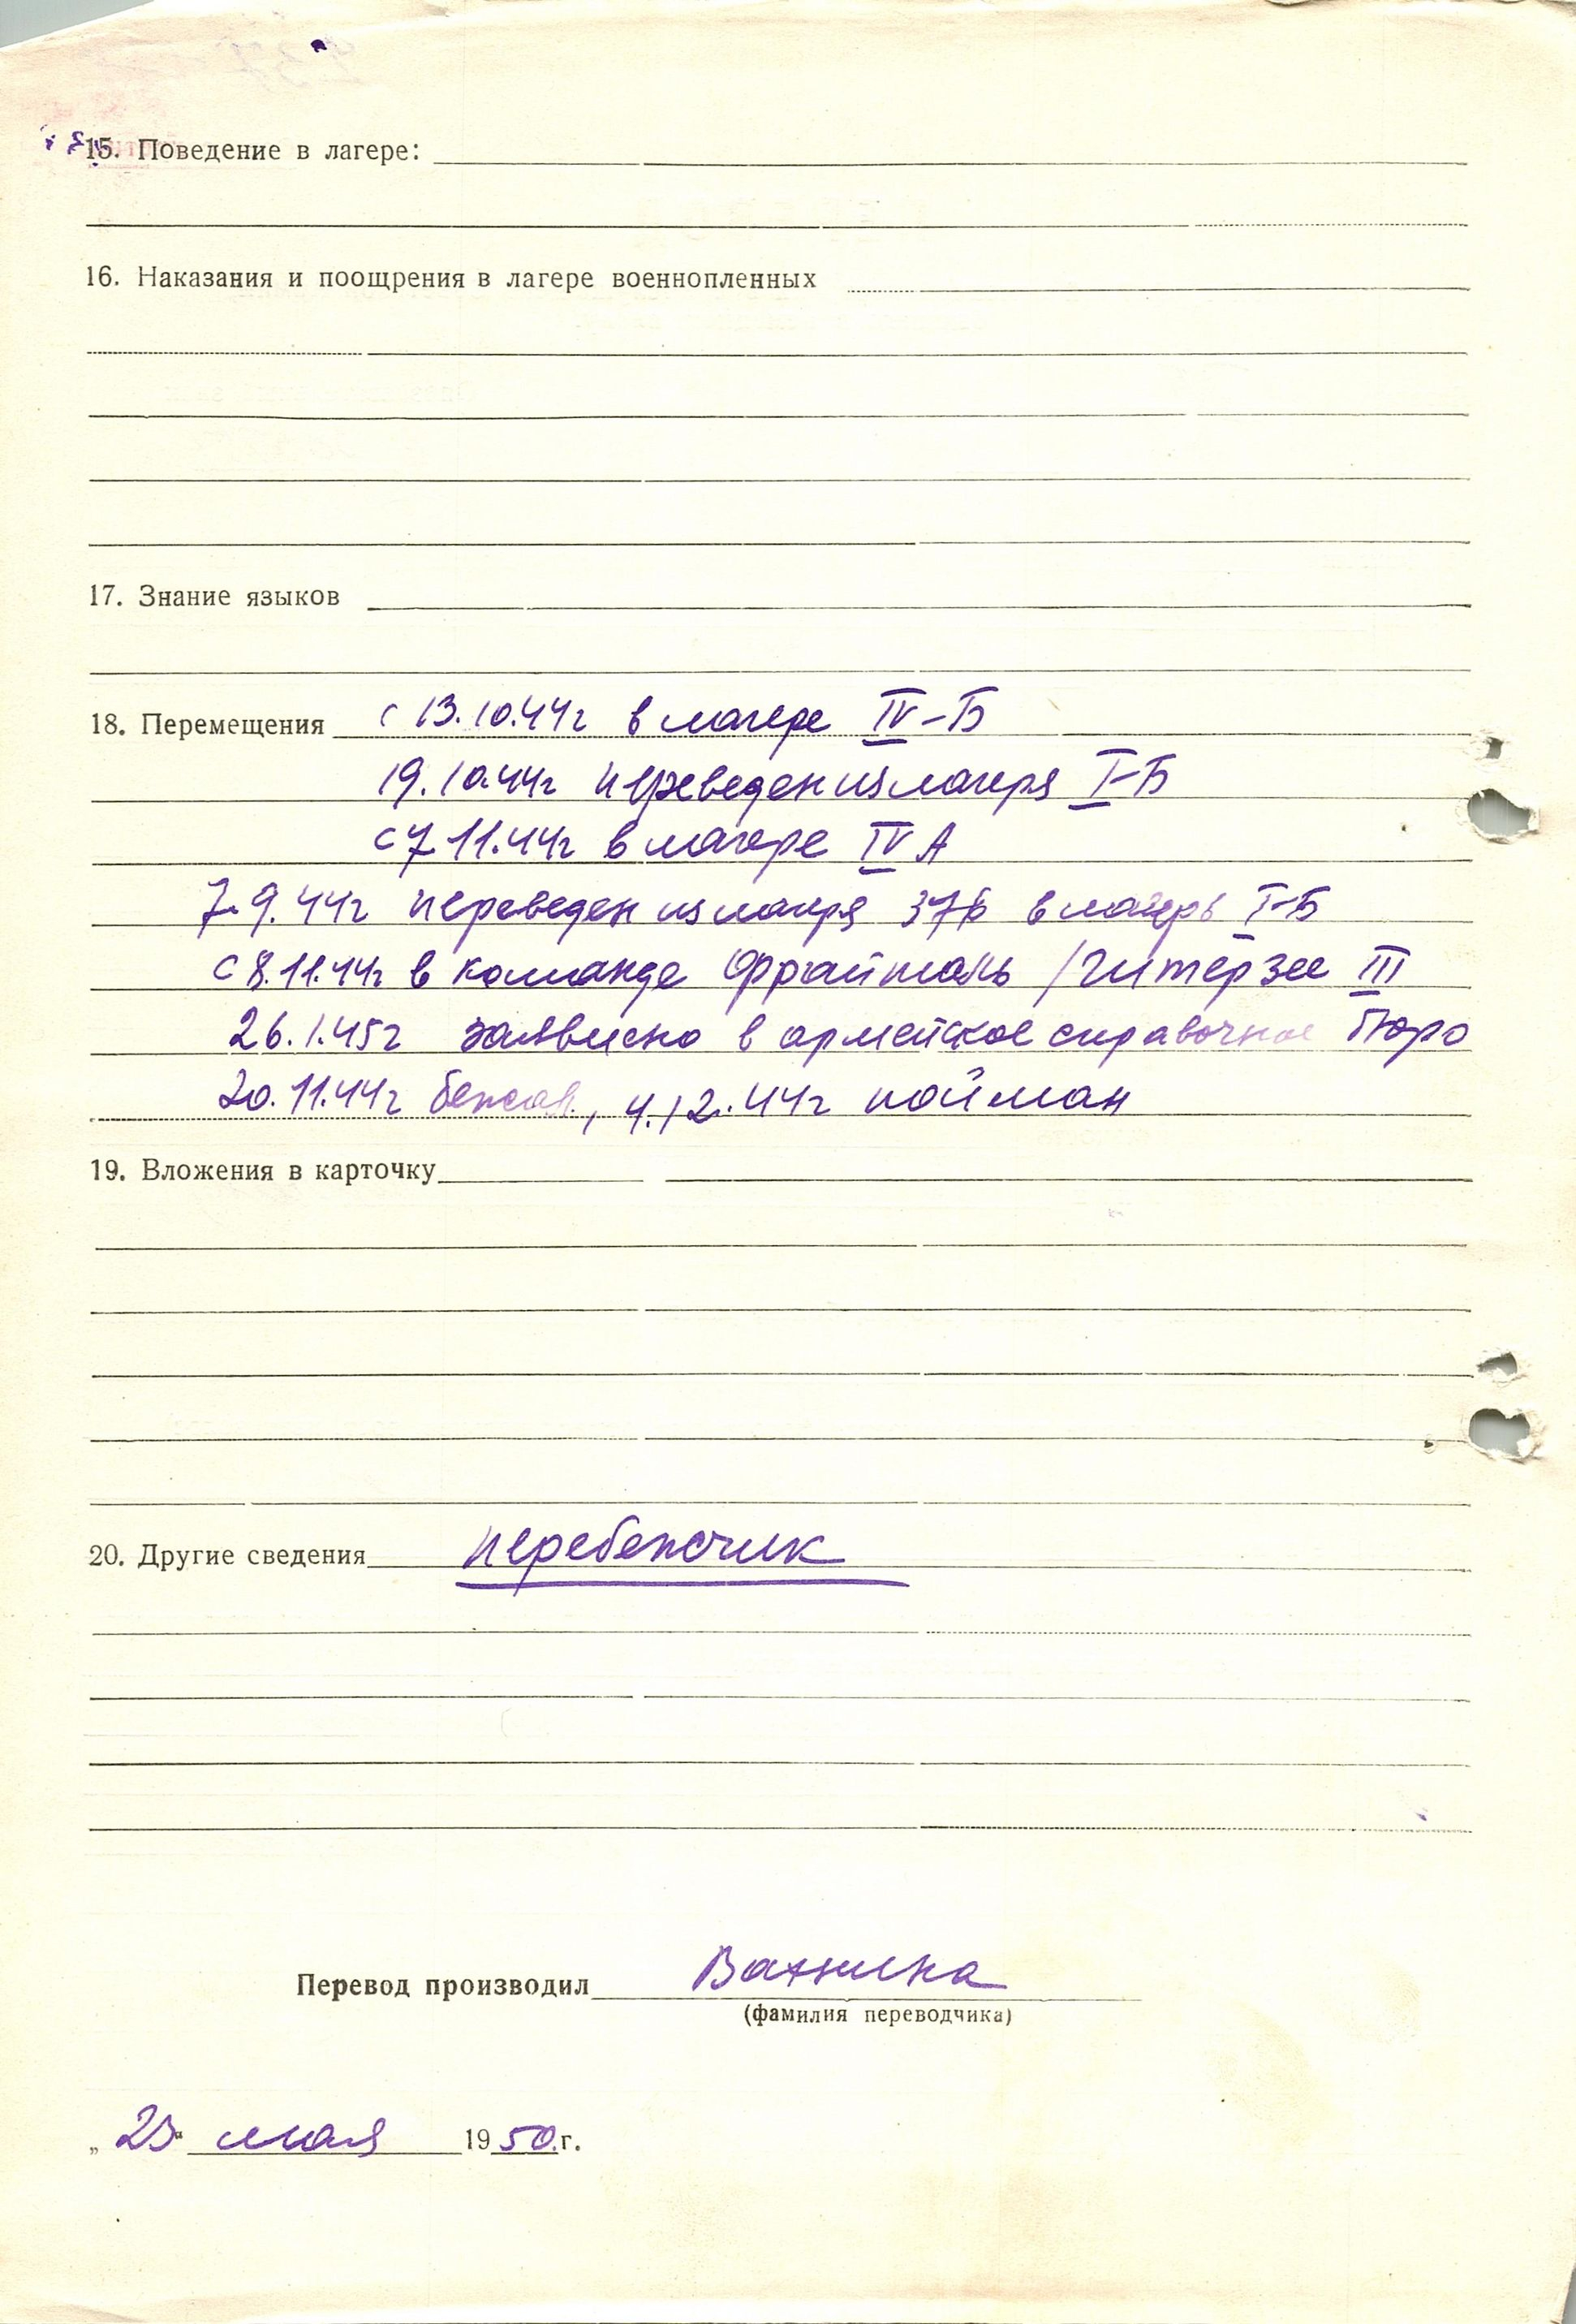 15. Поведение в лагере:
16. Наказания и поощрения в лагере военнопленных
17. Знание языков
18. Перемещения с 13.10.44г в лагере IV-Б
19.10.44г переведен из лагеря I-Б
с 7.11.44г в лагере IV А
7.9.44г переведен из лагеря 376 в лагерь I-Б
с 8.11.44г в команде Фрайталь / III
26.1.45г заявлено в армейское справочное бюро
20.11.44г бежал, 4.12.44г пойман
19. Вложения в карточку
20. Другие сведения перебежчик
Перевод производил
(фамилия переводчика)
„23“ мая 1950г.